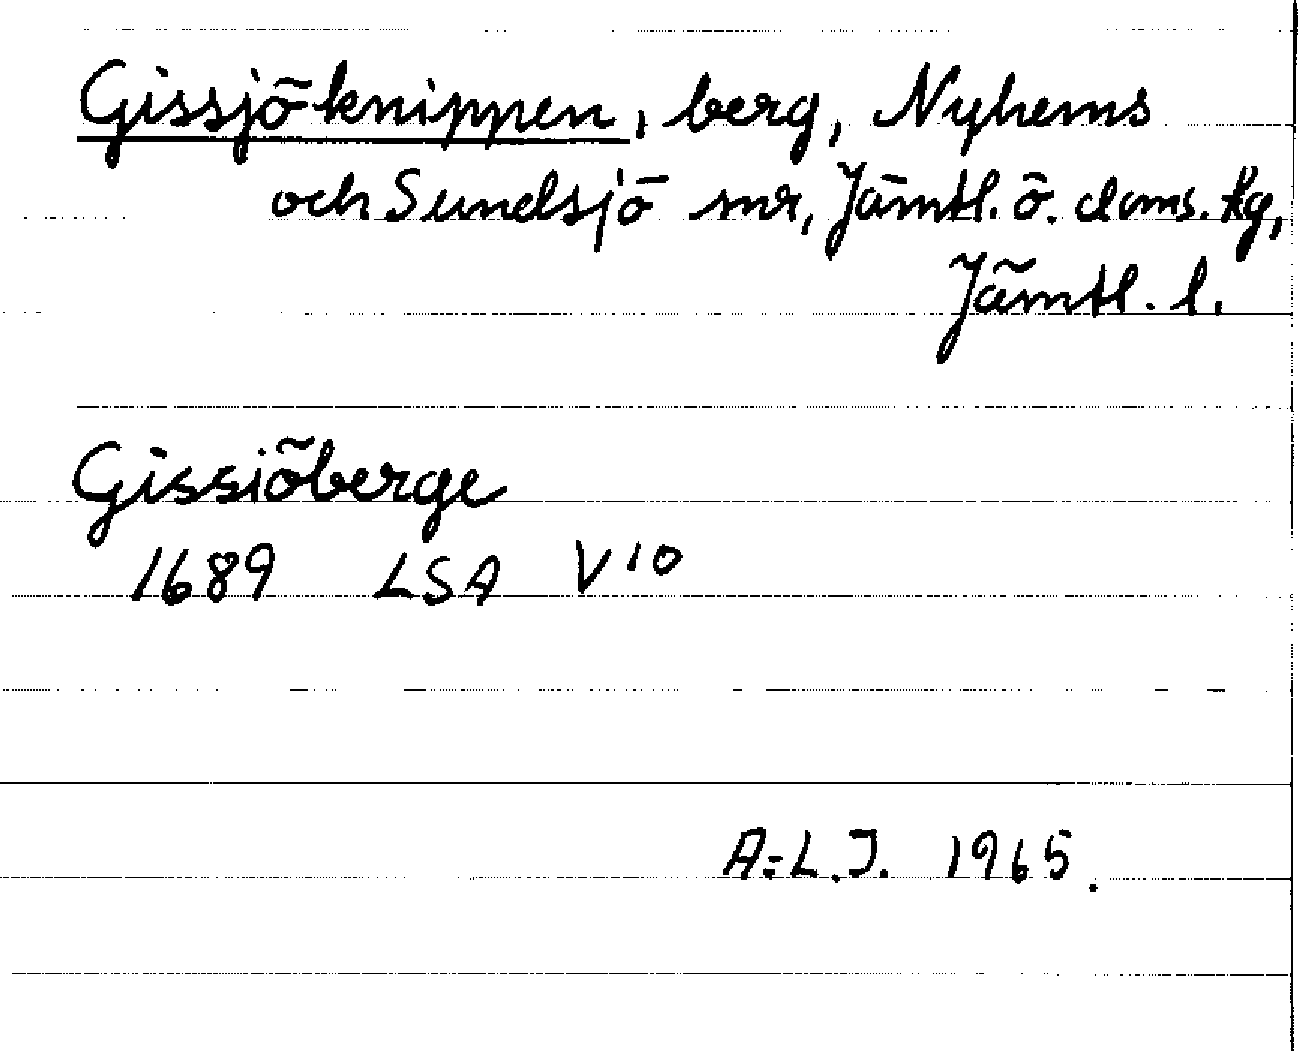 Gissjöknippen, berg, Nyhems
och Sundsjö snr, Jämtl. ö. doms. tg,
Jämtl. l.
Gissiöberge
1689 LSA V10
A-L.J. 1965.